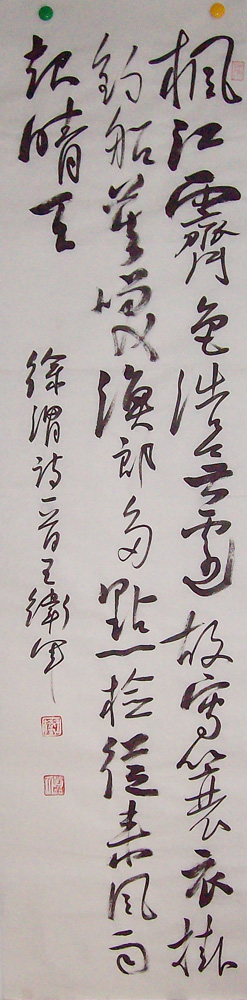 枫江霽色浩無邊故寫簑衣掛
釣船莫嘆漁郎多點檢從来風雨
趂晴天
徐渭詩一首王衛軍